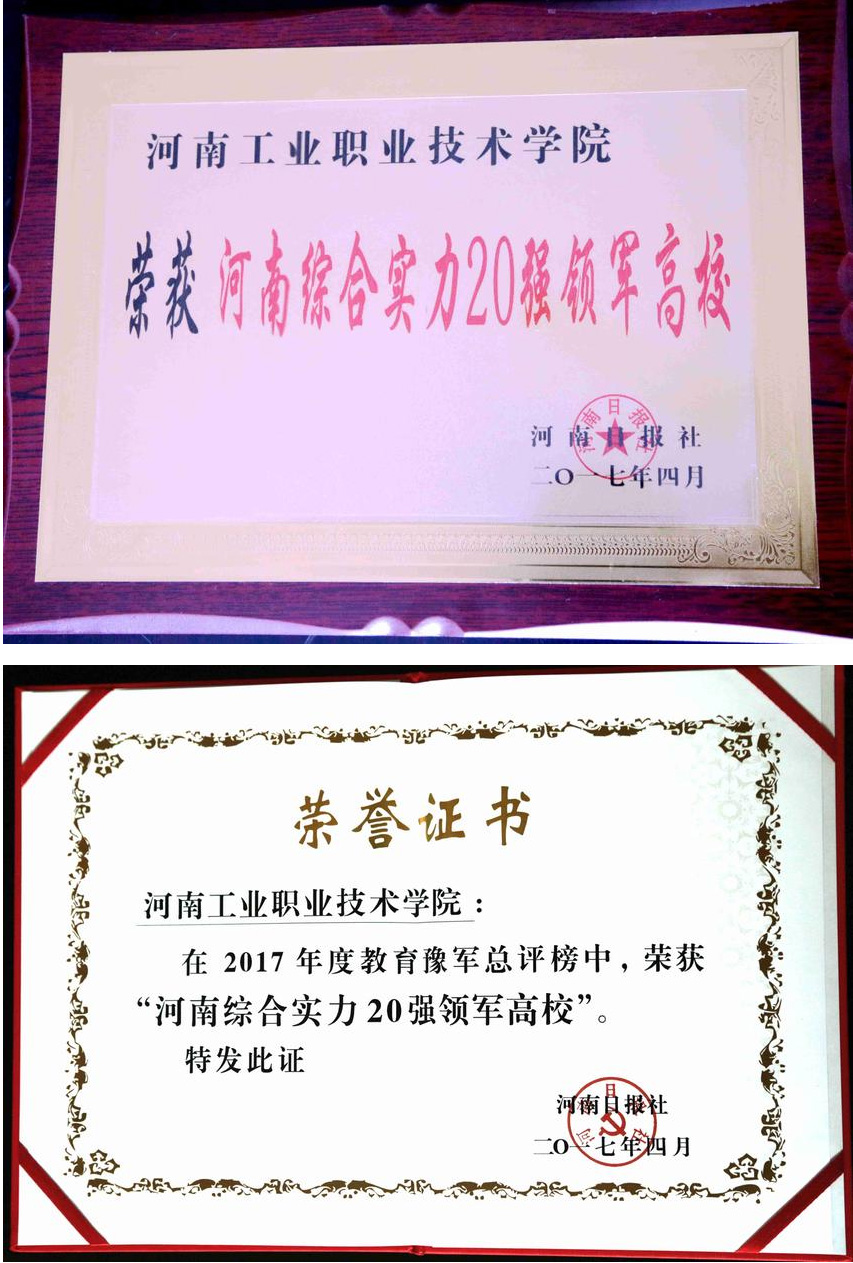 河南工业职业技术学院
荣获 河南综合实力20强领军高校
河南日报社
河南日报社
二〇一七年四月
荣誉证书
河南工业职业技术学院：
在 2017 年度教育豫军总评榜中，荣获
“河南综合实力 20强领军高校”。
特发此证
河南日报社
河南日报社
二〇一七年四月